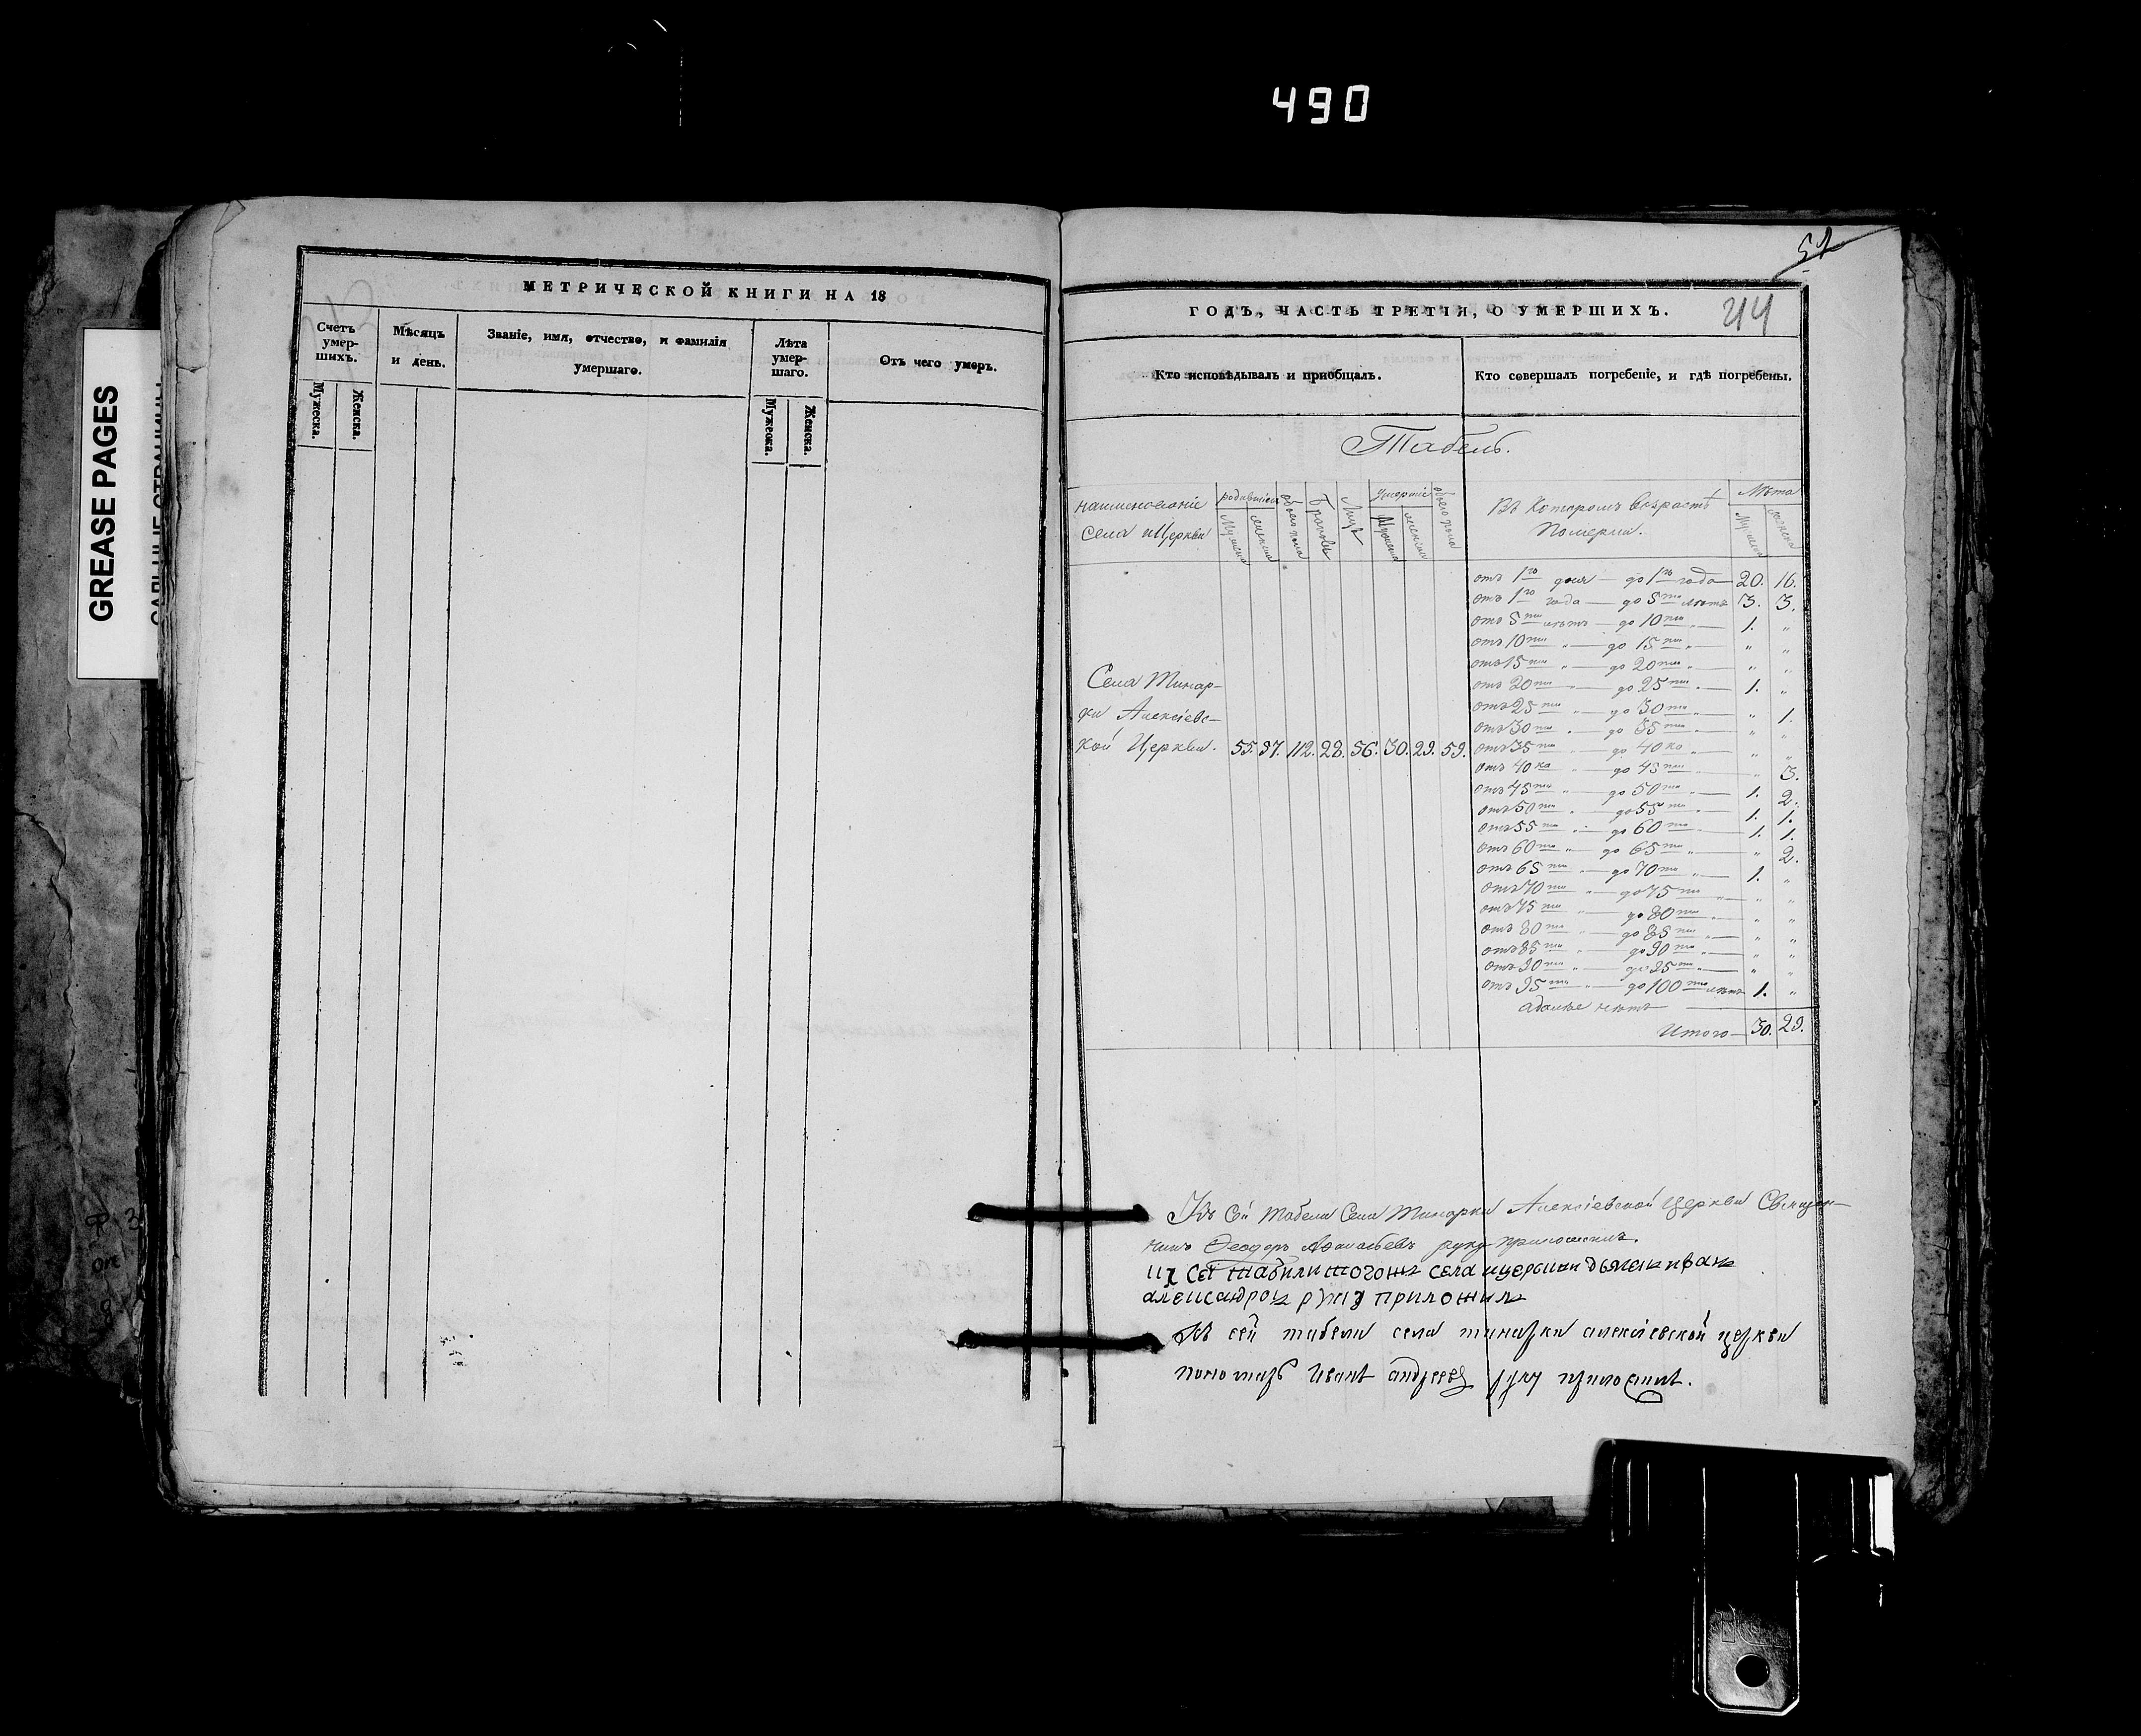 490
GREASE PAGES
МЕТРИЧЕСКОЙ КНИГИ НА 18
Счетъ умер-
шихъ.
Мужеска.
Женска.
Мѣсяцъ
и день.
Званіе, имя, отчество, и фамилія
умершаго.
Лѣта
умер-
шаго.
Мужеска.
Женска.
Отъ чего умеръ.
51
214
ГОДЪ, ЧАСТЬ ТРЕТІЯ, О УМЕРШИХЪ.
Кто исповѣдывалъ и пріобщалъ.
Кто совершалъ погребеніе, и гдѣ погребены.
Табель.
наименованіе
села и Церкви
родившіеся
Мужеска
женска
обоего пола
Браковъ
Лицъ
умершіе
Мужеска
женска
обоего пола
Въ Которомъ возрастѣ
Померли.
Лѣта
Мужеска
женска
Села Тинар-
ки Алексіевс-
кой Церкви. 55. 57. 112. 28. 56. 30. 29. 59.
отъ 1го дня — до 1го года — 20. 16.
отъ 1го года — до 5ти лѣтъ 3. 3.
отъ 5ти лѣтъ — до 10ти „ — 1. „
отъ 10ти „ — до 15ти „ — „ „
отъ 15ти „ — до 20ти „ — „ „
отъ 20ти „ — до 25ти „ — 1. „
отъ 25ти „ — до 30ти „ — „ 1.
отъ 30ти „ — до 35ти „ — „ „
отъ 35ти „ — до 40ка „ — „ „
отъ 40ка „ — до 45ти „ — „ 3.
отъ 45ти „ — до 50ти „ — 1. 2.
отъ 50ти „ — до 55ти „ — 1. 1.
отъ 55ти „ — до 60ти „ — 1. 1.
отъ 60ти „ — до 65ти „ — „ 2.
отъ 65ти „ — до 70ти „ — 1. „
отъ 70ти „ — до 75ти „ — „ „
отъ 75ти „ — до 80ти „ — „ „
отъ 80ти „ — до 85ти „ — „ „
отъ 85ти „ — до 90ти „ — „ „
отъ 90ти „ — до 95ти „ — „ „
отъ 95ти „ — до 100ти лѣтъ 1. „
адалѣе нѣтъ
Итого — 30. 29.
Къ Сей табели Села Тинарки Алексіевской Церкви Священ-
никъ Ѳеодоръ Аѳанасьевъ руку приложилъ.
Къ сей табили тогожъ села ицеркви дьячекъ иванъ
александровъ руку приложилъ
Къ сей табели села тинарки алексіевской церкви
пономарь Иванъ андреевъ руку приложилъ.